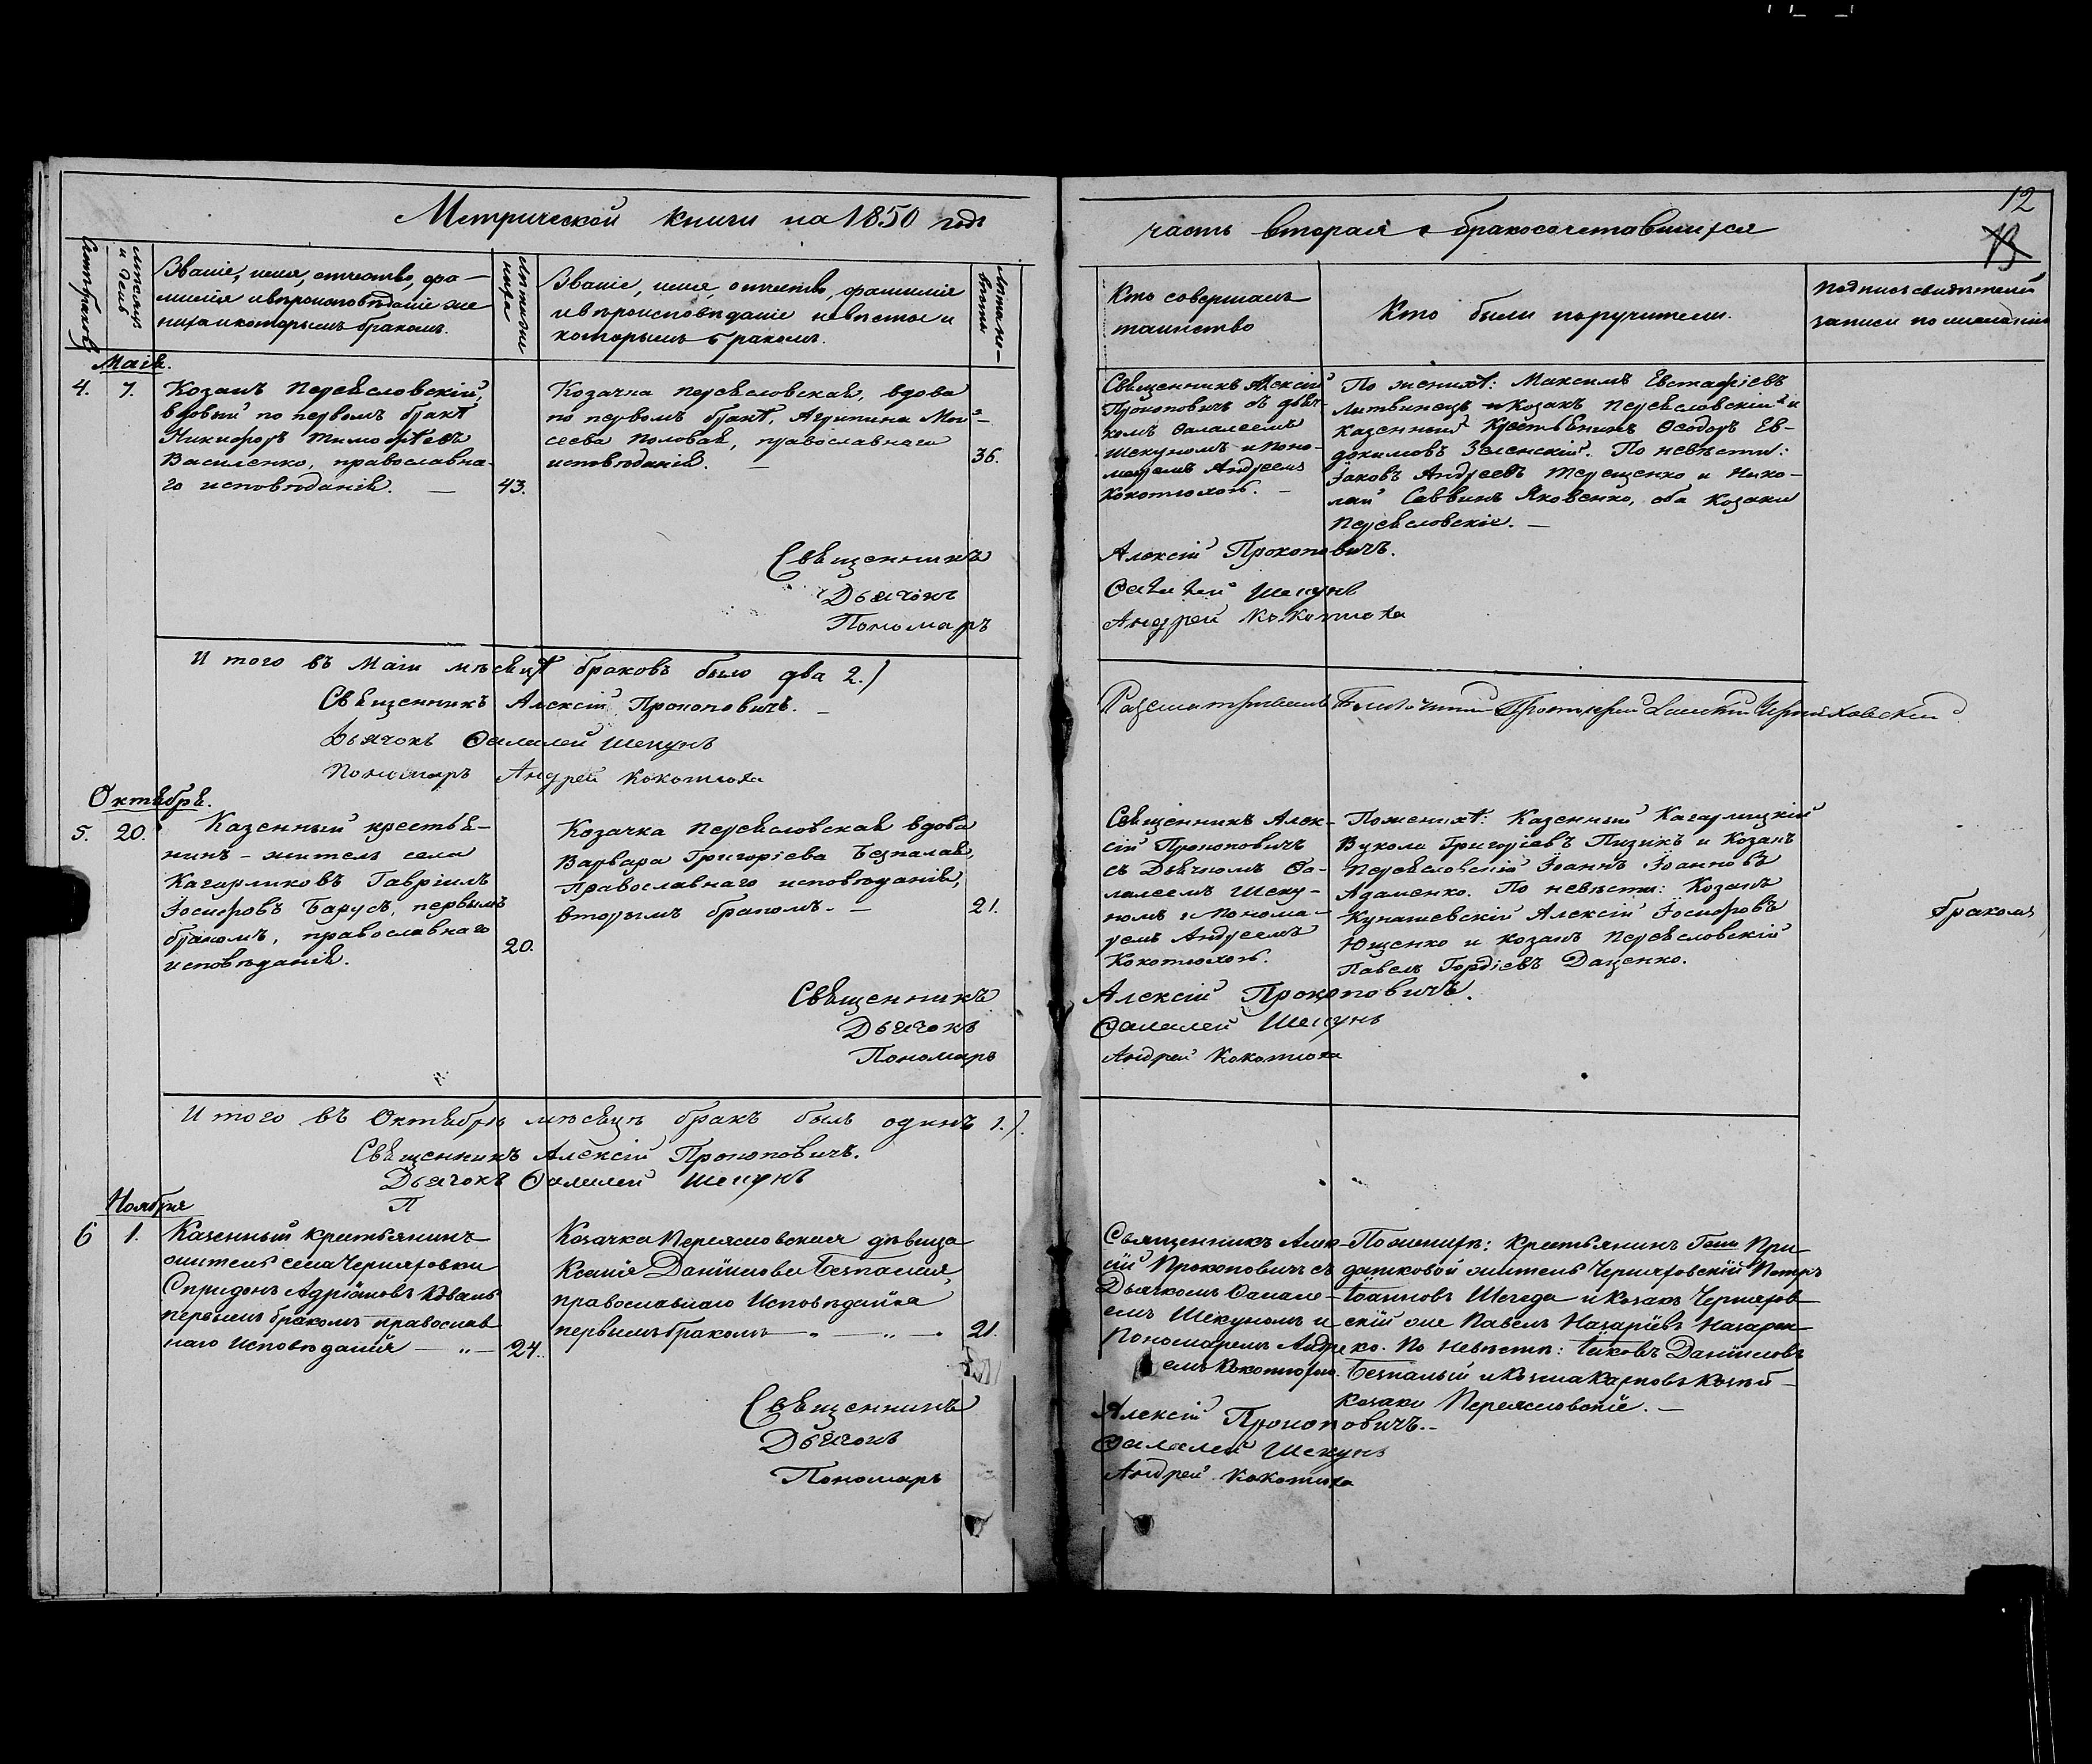 Метрической книги на 1850 годъ
часть вторая о бракосочетавшихся
12
13
Счетъ браковъ
Мѣсяцъ и день
Званіе, имя, отчество, фа-
милія и вѣроисповѣданіе же
ниха и которымъ бракомъ.
Лѣта жениха
Званіе, имя, отчество, фамилія
и вѣроисповѣданіе невѣсты и
которымъ бракомъ.
Лѣта не-
вѣсты
Кто совершалъ
таинство
Кто были поручители.
Подпись свидѣтелей
записи по желанію
Маія.
4. 7.
Козакъ Переясловскій,
вдовый по первомъ бракѣ
Никифоръ Тимофѣевъ
Василенко, православна-
го исповѣданія. —
43.
Козачка Переясловская, вдова
по первомъ бракѣ, Агрипина Мой-
сеева Половая, православнаго
исповѣданія. —
36.
Священникъ Алексій
Прокоповичъ съ дьяч-
комъ Фалалеемъ
Шекуномъ и Поно-
маремъ Андреемъ
Кокотюхою. —
По женихѣ: Максимъ Евстафіевъ
Литвинецъ Козакъ Переясловскій и
казенный Крестьянинъ Феодоръ Ев-
докимовъ Зеленскій. По невѣсты:
Іаковъ Андреевъ Терещенко и Нико-
лай Саввинъ Яковенко, оба Козаки
Переясловскіе. —
Священникъ Алексій Прокоповичъ.
Дьячокъ Фалалей Шекунъ
Пономаръ Андрей Кокотюха
И того въ Маіи мѣсяцѣ браковъ было два 2.)
Священникъ Алексій Прокоповичъ. —
Дьячокъ Фалалей Шекунъ
Пономаръ Андрей Кокотюха
Разсматривалъ Благочинный Протоіерей
Октября.
5. 20.
Казенный крестья-
нинъ – житель села
Кагарликовъ Гавріилъ
Іосифовъ Барусъ, первымъ
бракомъ, православнаго
исповѣданія.
20.
Козачка Переясловская вдова
Варвара Григоріева Безпалая,
Православнаго исповѣданія,
вторымъ бракомъ. —
21.
Священникъ Алек-
сій Прокоповичъ
съ Дьячкомъ Фа-
лалеемъ Шеку-
номъ и Понома-
ремъ Андреемъ
Кокотюхою.
По женихѣ: Казенный Кагарлицкій
Вукола Григоріевъ Пизикъ и Козакъ
Переясловскій Іоаннъ Іоанновъ
Адаменко. По невѣсти: Козакъ
Кунашевскій Алексій Іосифовъ
Ющенко и козакъ Переясловскій
Павелъ Гордіевъ Даценко.
бракомъ
Священникъ Алексій Прокоповичъ.
Дьячокъ Фалалей Шекунъ
Пономаръ Андрей Кокотюха
И того въ Октябрѣ мѣсяцѣ бракъ былъ одинъ 1.).
Священникъ Алексій Прокоповичъ.
Дьячокъ Фалалей Шекунъ
П
Ноября
6 1.
Казенный крестьянинъ
житель села Черняховки
Спридонъ Адріановъ Коваль
первымъ бракомъ православ
наго Исповѣданія — „ —
24.
Козачка Переясловская дѣвица
Ксенія Даніилова Безпалая,
православнаго Исповѣданія
первымъ бракомъ — „ — „ —
21.
Священникъ Алек-
сій Прокоповичъ съ
Дьячкомъ Фалале-
емъ Шекуномъ и
Пономаремъ Андре
емъ Кокотюхою.
По женихѣ: Крестьянинъ При
датковой житель Черняховскій Петръ
Іоанновъ Шегеда и Козакъ Черняхов
скій же Павелъ Назаріевъ Назарен
ко. По Невѣстѣ: Іаковъ Даніиловъ
Безпалый и Козма Карповъ
козаки Переясловскіе. —
Священникъ Алексій Прокоповичъ. —
Дьячокъ Фалалей Шекунъ
Пономаръ Андрей Кокотюха